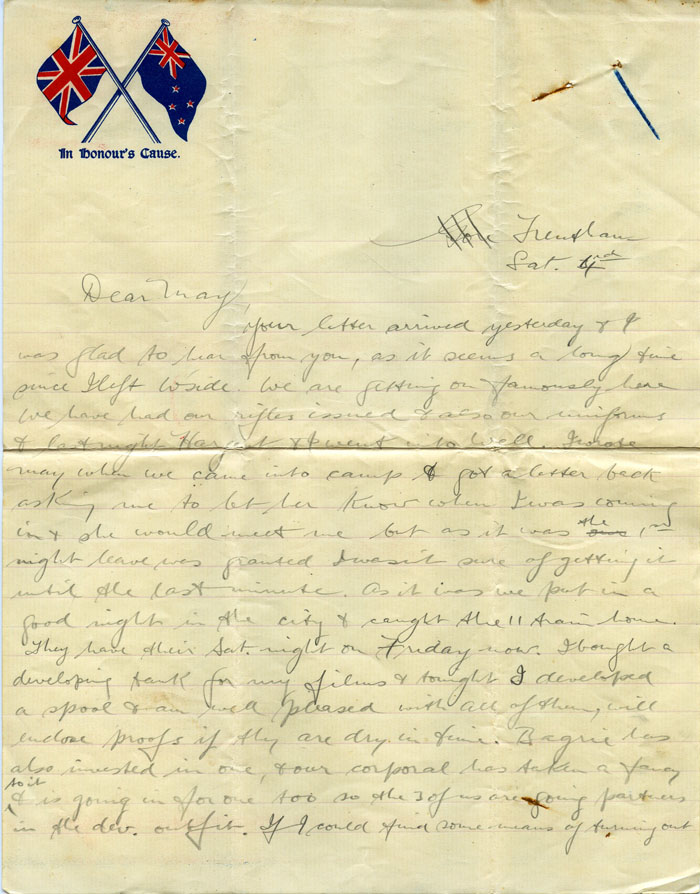 In Honour's Cause.
Trentham
Sat. 4rd
Dear May,
Your letter arrived yesterday & I
was glad to hear from you, as it seems a long time
since I left W'side. We are getting on famously here
We have had our rifles issued & also our uniforms
& last night & I went into Well. I wrote
May when we came into camp & got a letter back
asking me to let her know when I was coming
in & she would meet me but as it was the 1st
night leave was granted I wasn't sure of getting it
until the last minute. As it was we put in a
good night in the city & caught the 11 train home.
They have their Sat. night on Friday now. I bought a
developing tank for my films & tonight I developed
a spool & am well pleased with all of them, will
enclose proofs if they are dry in time. Bagrie has
also invested in one, & our corporal has taken a fancy
to it
& is going in for one too so the 3 of us are going partners
in the dev. outfit. If I could find some means of turning out